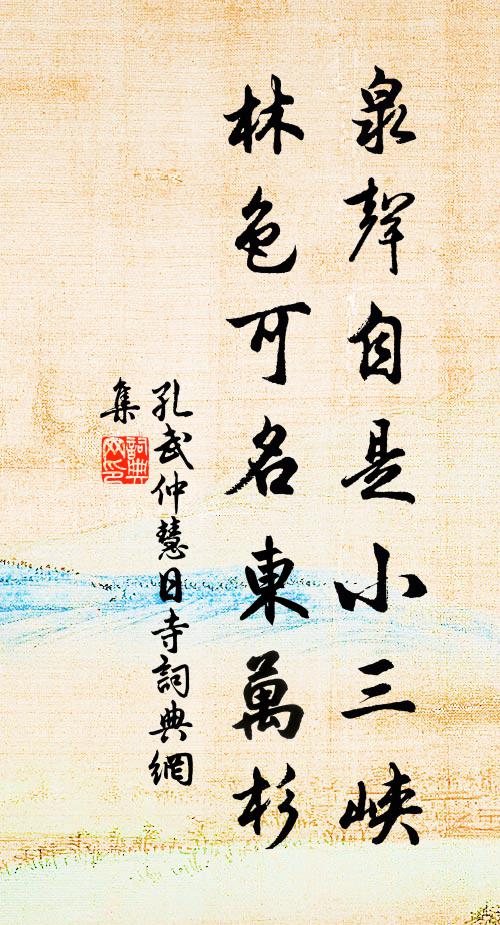 泉聲自是小三峽
林色可名東萬杉
孔武仲慧日寺詞典網
集
詞典
网印